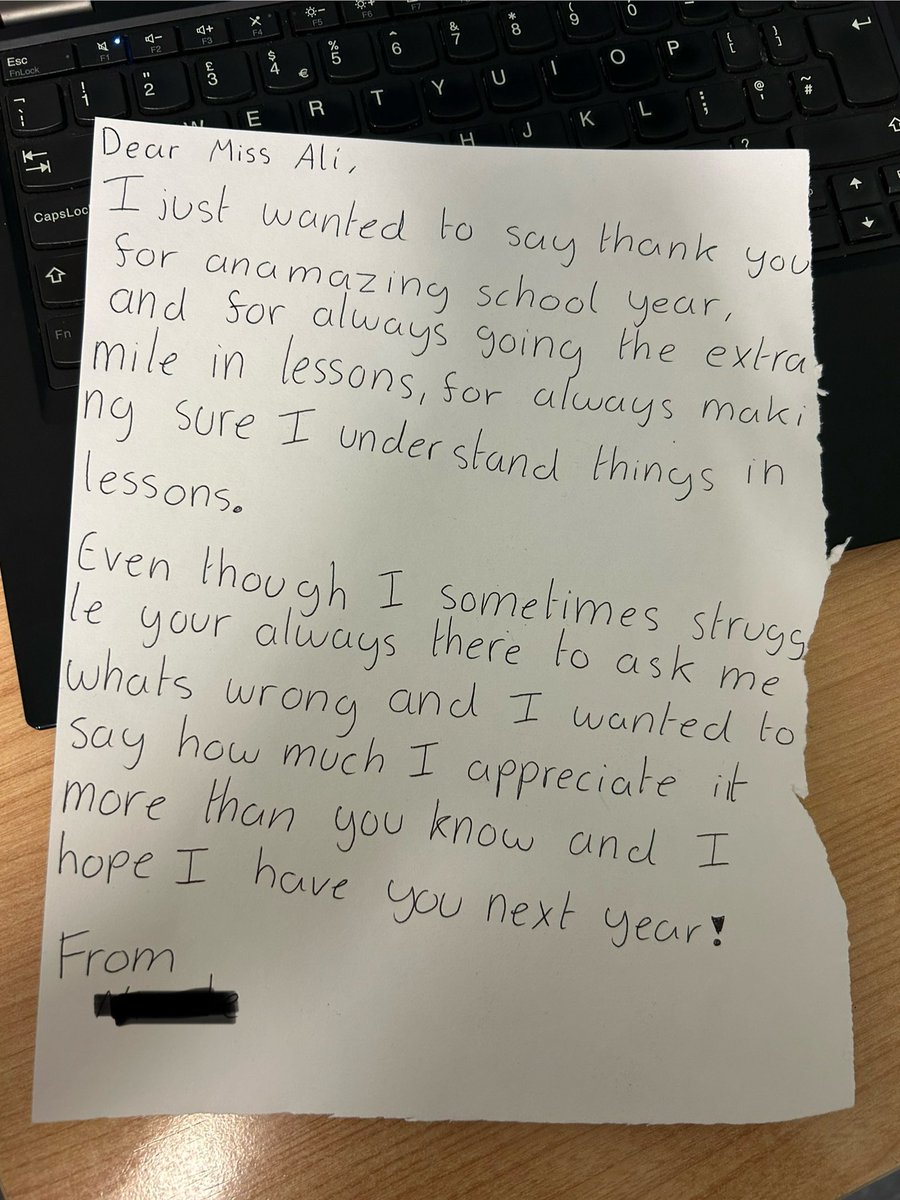 Esc
FnLock
F1
F2
F3
F4
F5
F6
F7
F8
! 1
" 2
£ 3
$ 4 €
% 5
^ 6
& 7
* 8
( 9
) 0
W E R T Y U I O P { [ } ]
CapsLock
H J K L : ; @ ' ~ #
?
Fn
Dear Miss Ali,
I just wanted to say thank you
for anamazing school year,
and for always going the extra
mile in lessons, for always maki
ng sure I understand things in
lessons.
Even though I sometimes strugg
le your always there to ask me
whats wrong and I wanted to
say how much I appreciate it
more than you know and I
hope I have you next year!
From